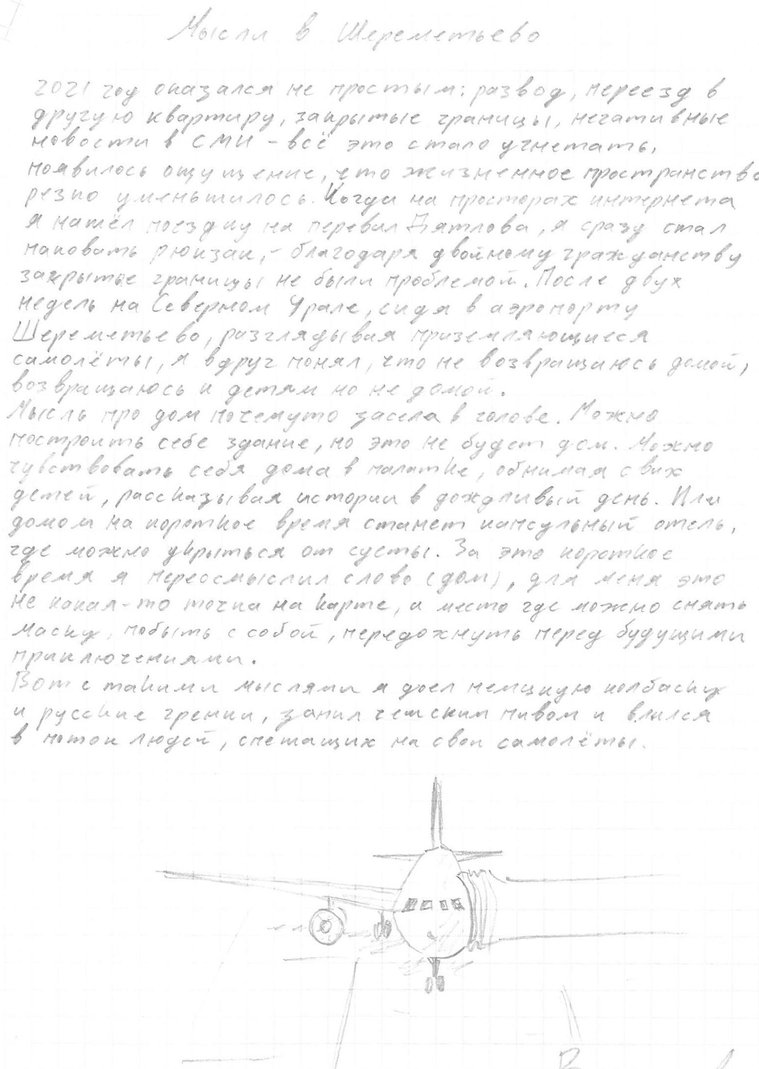 Мысли в Шереметьево
2021 год оказался не простым: развод, переезд в
другую квартиру, закрытые границы, негативные
новости в СМИ - всё это стало угнетать,
появилось ощущение, что жизненное пространство
резко уменьшилось. Когда на просторах интернета
я нашёл поездку на перевал Дятлова, я сразу стал
паковать рюкзак, - благодаря двойному гражданству
закрытые границы не были проблемой. После двух
недель на Северном Урале, сидя в аэропорту
Шереметьево, разглядывая приземляющиеся
самолёты, я вдруг понял, что не возвращаюсь домой,
возвращаюсь к детям но не домой.
Мысль про дом почемуто засела в голове. Можно
построить себе здание, но это не будет дом. Можно
чувствовать себя дома в палатке, обнимая своих
детей, рассказывая истории в дождливый день. Или
домом на короткое время станет капсульный отель,
где можно укрыться от суеты. За это короткое
время я переосмыслил слово (дом), для меня это
не какая-то точка на карте, а место где можно снять
маску, побыть с собой, передохнуть перед будущими
приключениями.
Вот с такими мыслями я доел немецкую колбаску
и русские гренки, запил чешским пивом и влился
в поток людей, спешащих на свои самолёты.